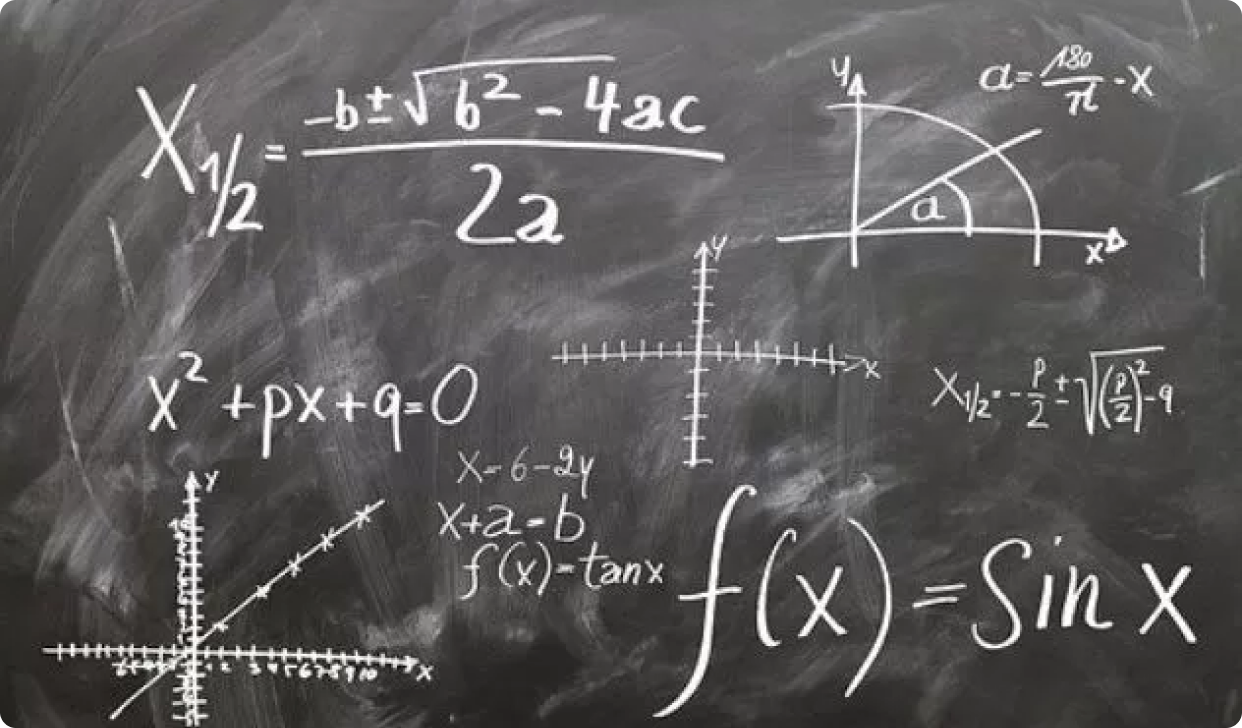 X₁/₂ = (-b ± √(b² - 4ac)) / 2a
y
a = 180/π - X
a
x
y
x
x² + px + q = 0
X₁/₂ = -p/2 ± √((p/2)² - q)
X = 6 - 2y
X + a = b
f(x) = tan x
f(x) = Sin x
y
3 4 5 6 7 8 9 10
x